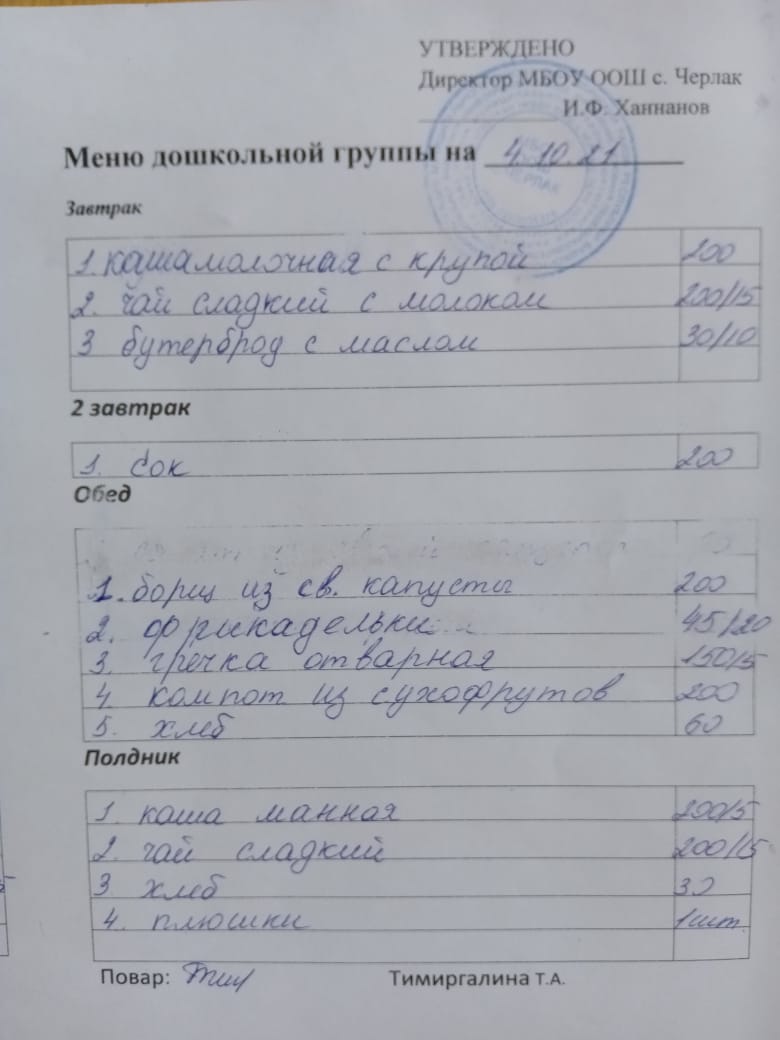 УТВЕРЖДЕНО
Директор МБОУ ООШ с. Черлак
И.Ф. Ханнанов
Меню дошкольной группы на 4.10.21
Завтрак
1. каша молочная с крупой 200
2. чай сладкий с молоком 200/15
3 бутерброд с маслом 30/10
2 завтрак
1. сок 200
Обед
1. борщ из св. капусты 200
2. фрыкадельки 45/20
3. гречка отварная 150/5
4 компот из сухофрутов 200
5. хлеб 60
Полдник
1 каша манная 200/5
2. чай сладкий 200/15
3 хлеб 30
4. плюшки 1 шт.
Повар: Тимиргалина Т.А.